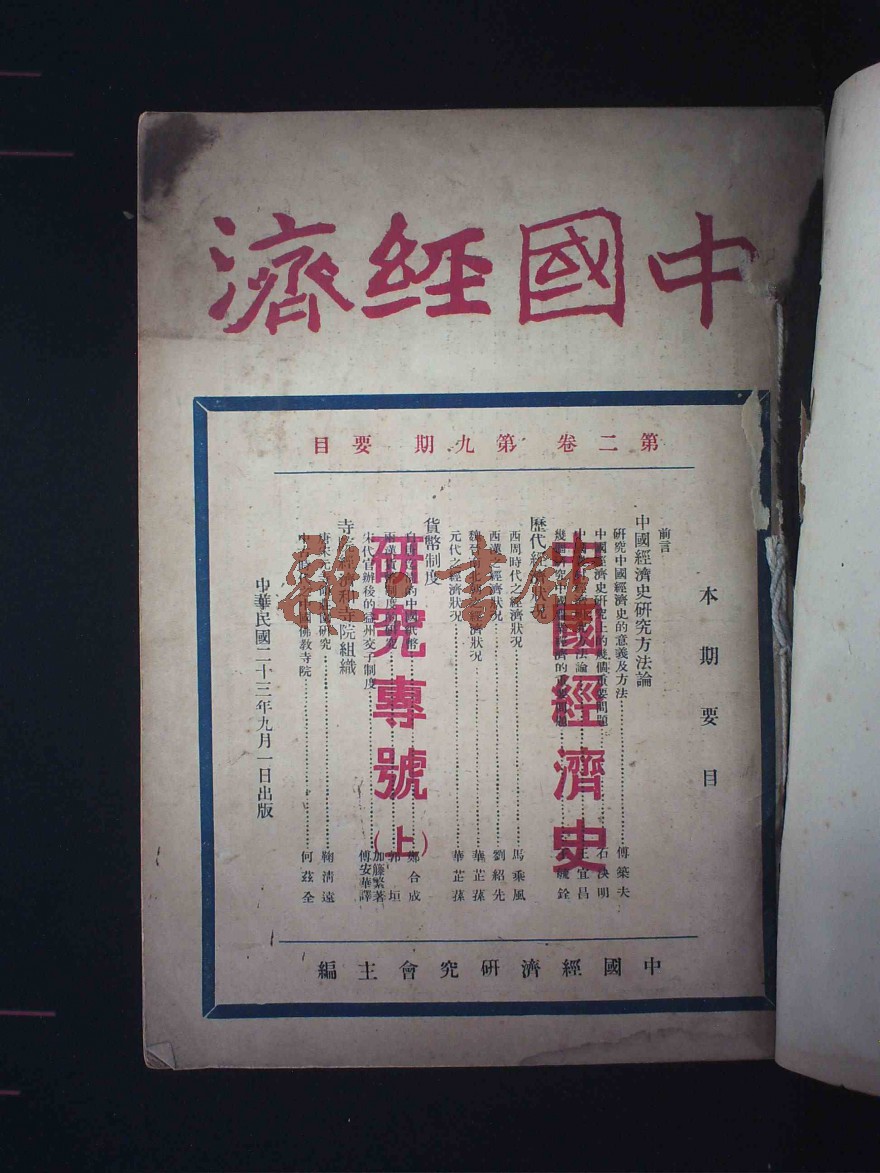 中國經濟
第二卷 第九期 要目
本期要目
中國經濟史
研究專號（上）
前言
中國經濟史研究方法論
研究中國經濟史的意義及方法……傅築夫
中國經濟史研究上的幾個重要問題……石決明
歷代經濟狀況
西周時代之經濟狀況……馬乘風
西漢之經濟狀況……劉紹先
經濟狀況……華芷蓀
元代之經濟狀況……華芷蓀
貨幣制度
的中國紙幣……鄭合成
研究……郭垣
宋代官辦後的益州交子制度……加籐繁著 傅安華譯
寺院組織
唐宋元研究……鞠清遠
中國佛教寺院……何茲全
中華民國二十三年九月一日出版
中國經濟研究會主編